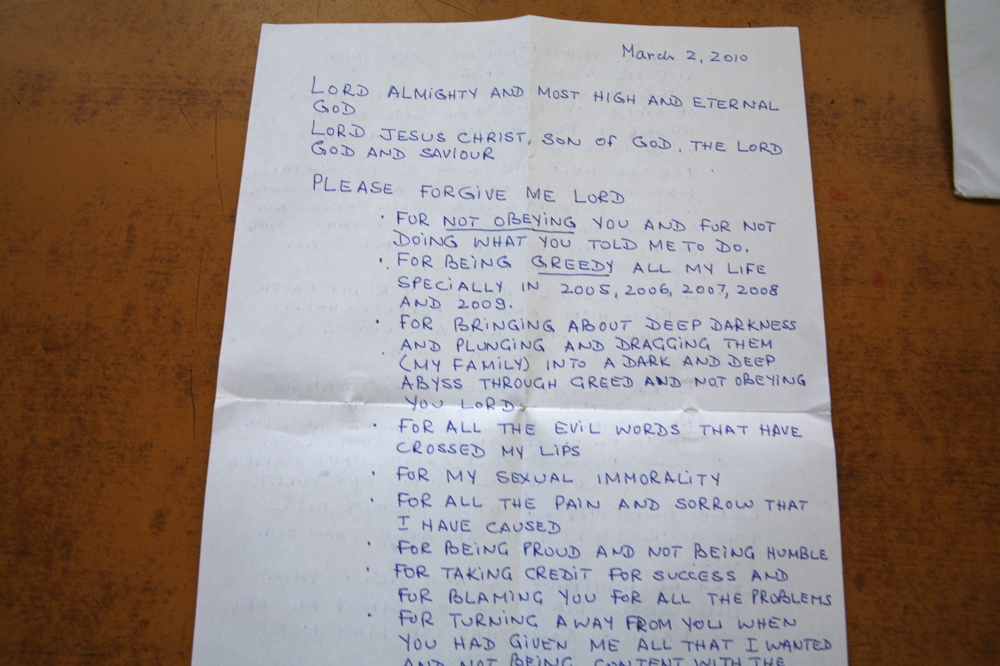 March 2, 2010
LORD ALMIGHTY AND MOST HIGH AND ETERNAL
GOD
LORD JESUS CHRIST, SON OF GOD, THE LORD
GOD AND SAVIOUR
PLEASE FORGIVE ME LORD
· FOR NOT OBEYING YOU AND FOR NOT
DOING WHAT YOU TOLD ME TO DO.
· FOR BEING GREEDY ALL MY LIFE
SPECIALLY IN 2005, 2006, 2007, 2008
AND 2009.
· FOR BRINGING ABOUT DEEP DARKNESS
AND PLUNGING AND DRAGGING THEM
(MY FAMILY) INTO A DARK AND DEEP
ABYSS THROUGH GREED AND NOT OBEYING
YOU LORD.
· FOR ALL THE EVIL WORDS THAT HAVE
CROSSED MY LIPS
· FOR MY SEXUAL IMMORALITY
· FOR ALL THE PAIN AND SORROW THAT
I HAVE CAUSED
· FOR BEING PROUD AND NOT BEING HUMBLE
· FOR TAKING CREDIT FOR SUCCESS AND
FOR BLAMING YOU FOR ALL THE PROBLEMS
· FOR TURNING AWAY FROM YOU WHEN
YOU HAD GIVEN ME ALL THAT I WANTED
AND NOT BEING CONTENT WITH THE